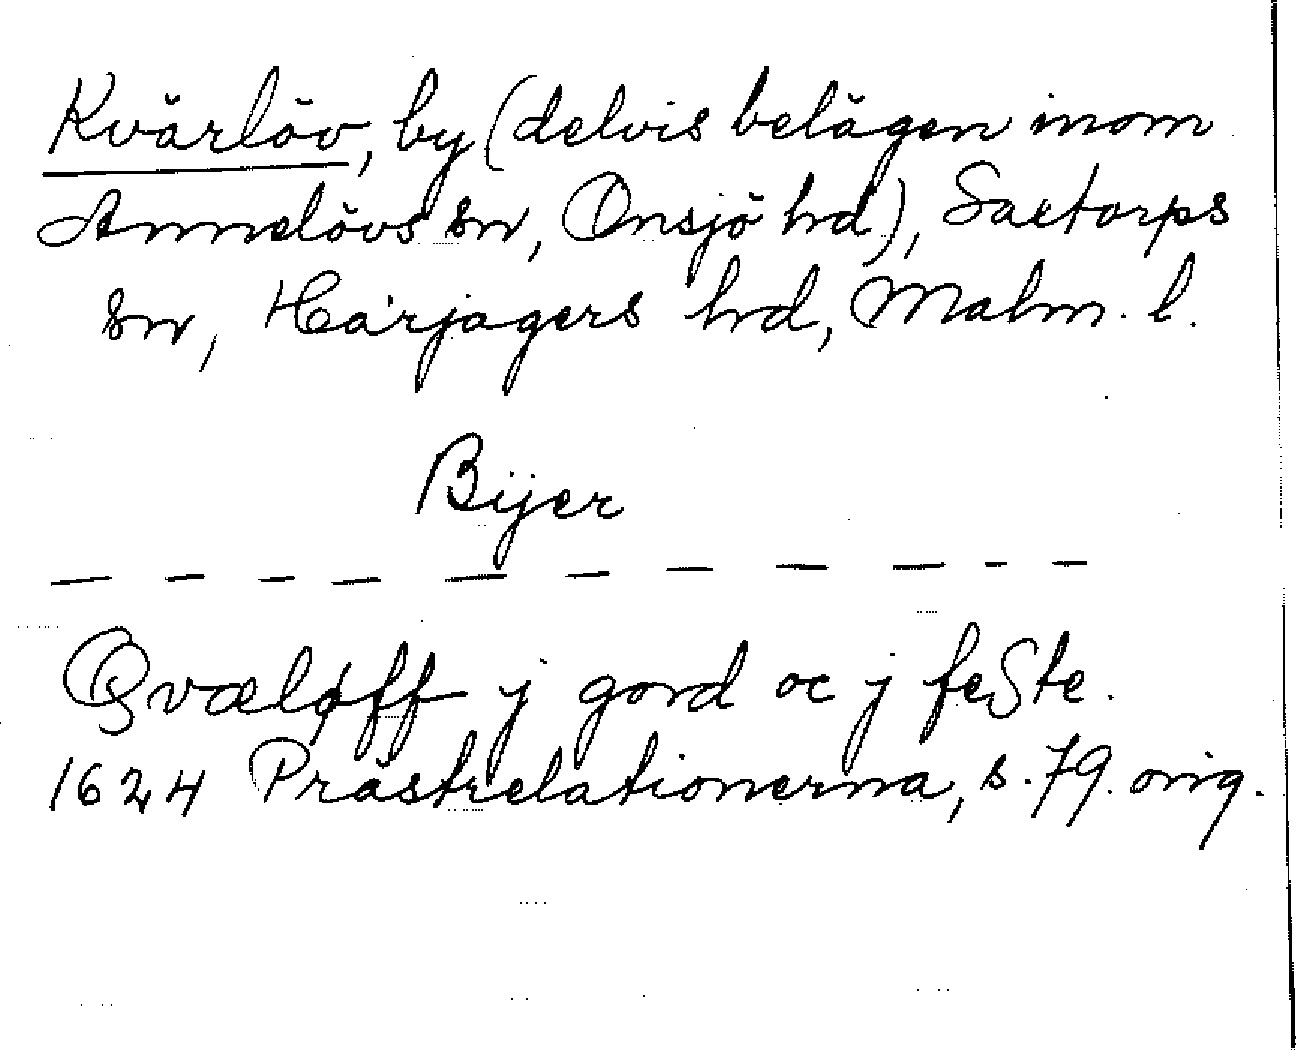 Kvärlöv, by (delvis belägen inom
Annelövs sn, Onsjö hd), Saxtorps
sn, Harjagers hd, Malm. l.
Bijer
— — — — — — — — — — —
Qvæløff j gord oc j feste.
1624 Prästrelationerna, s. 79. orig.